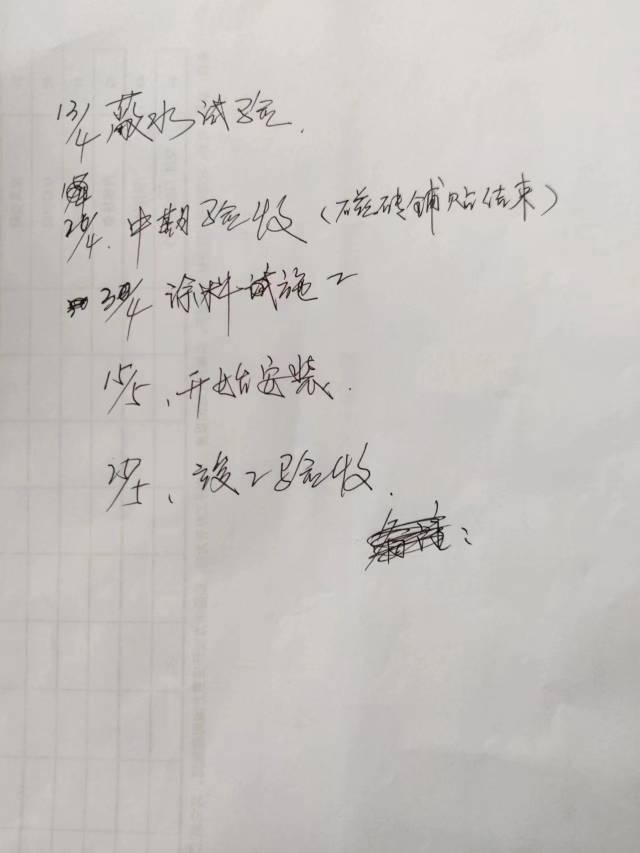 13/4 蔽水试验.
28/4. 中期验收(磁砖铺贴结束)
30/4 涂料 施工
15/5、开始安装.
25/5、竣工验收.